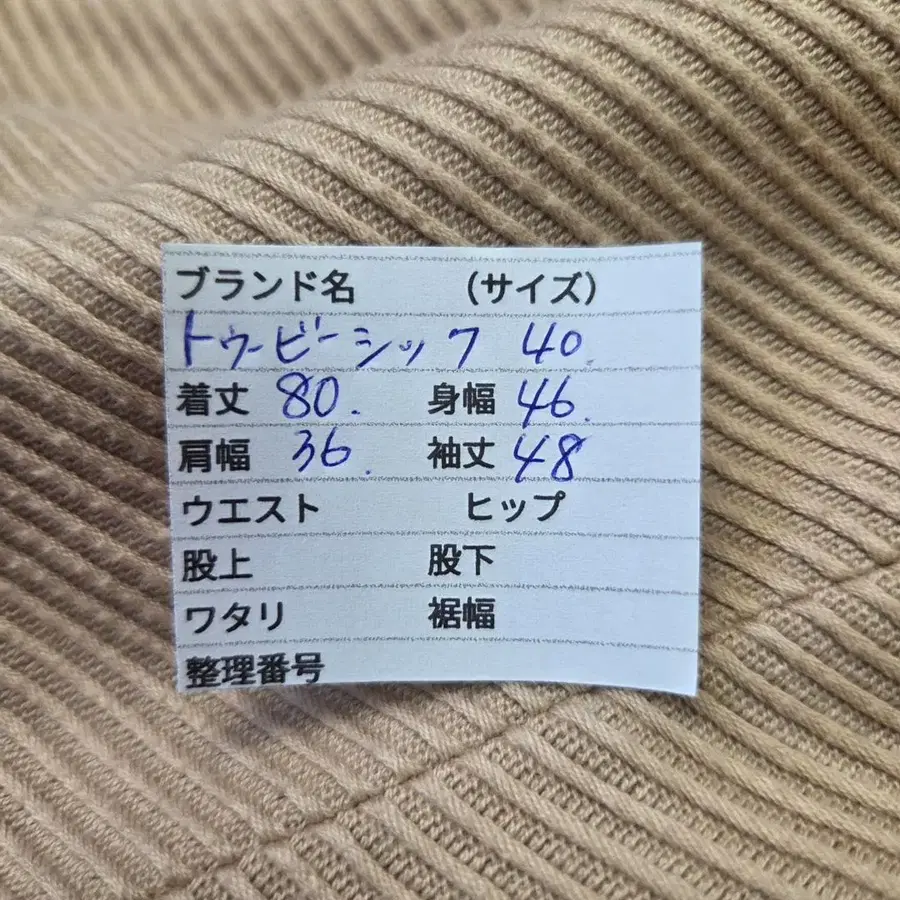 ブランド名 (サイズ)
トゥービーシック 40.
着丈 80. 身幅 46.
肩幅 36. 袖丈 48
ウエスト ヒップ
股上 股下
ワタリ 裾幅
整理番号